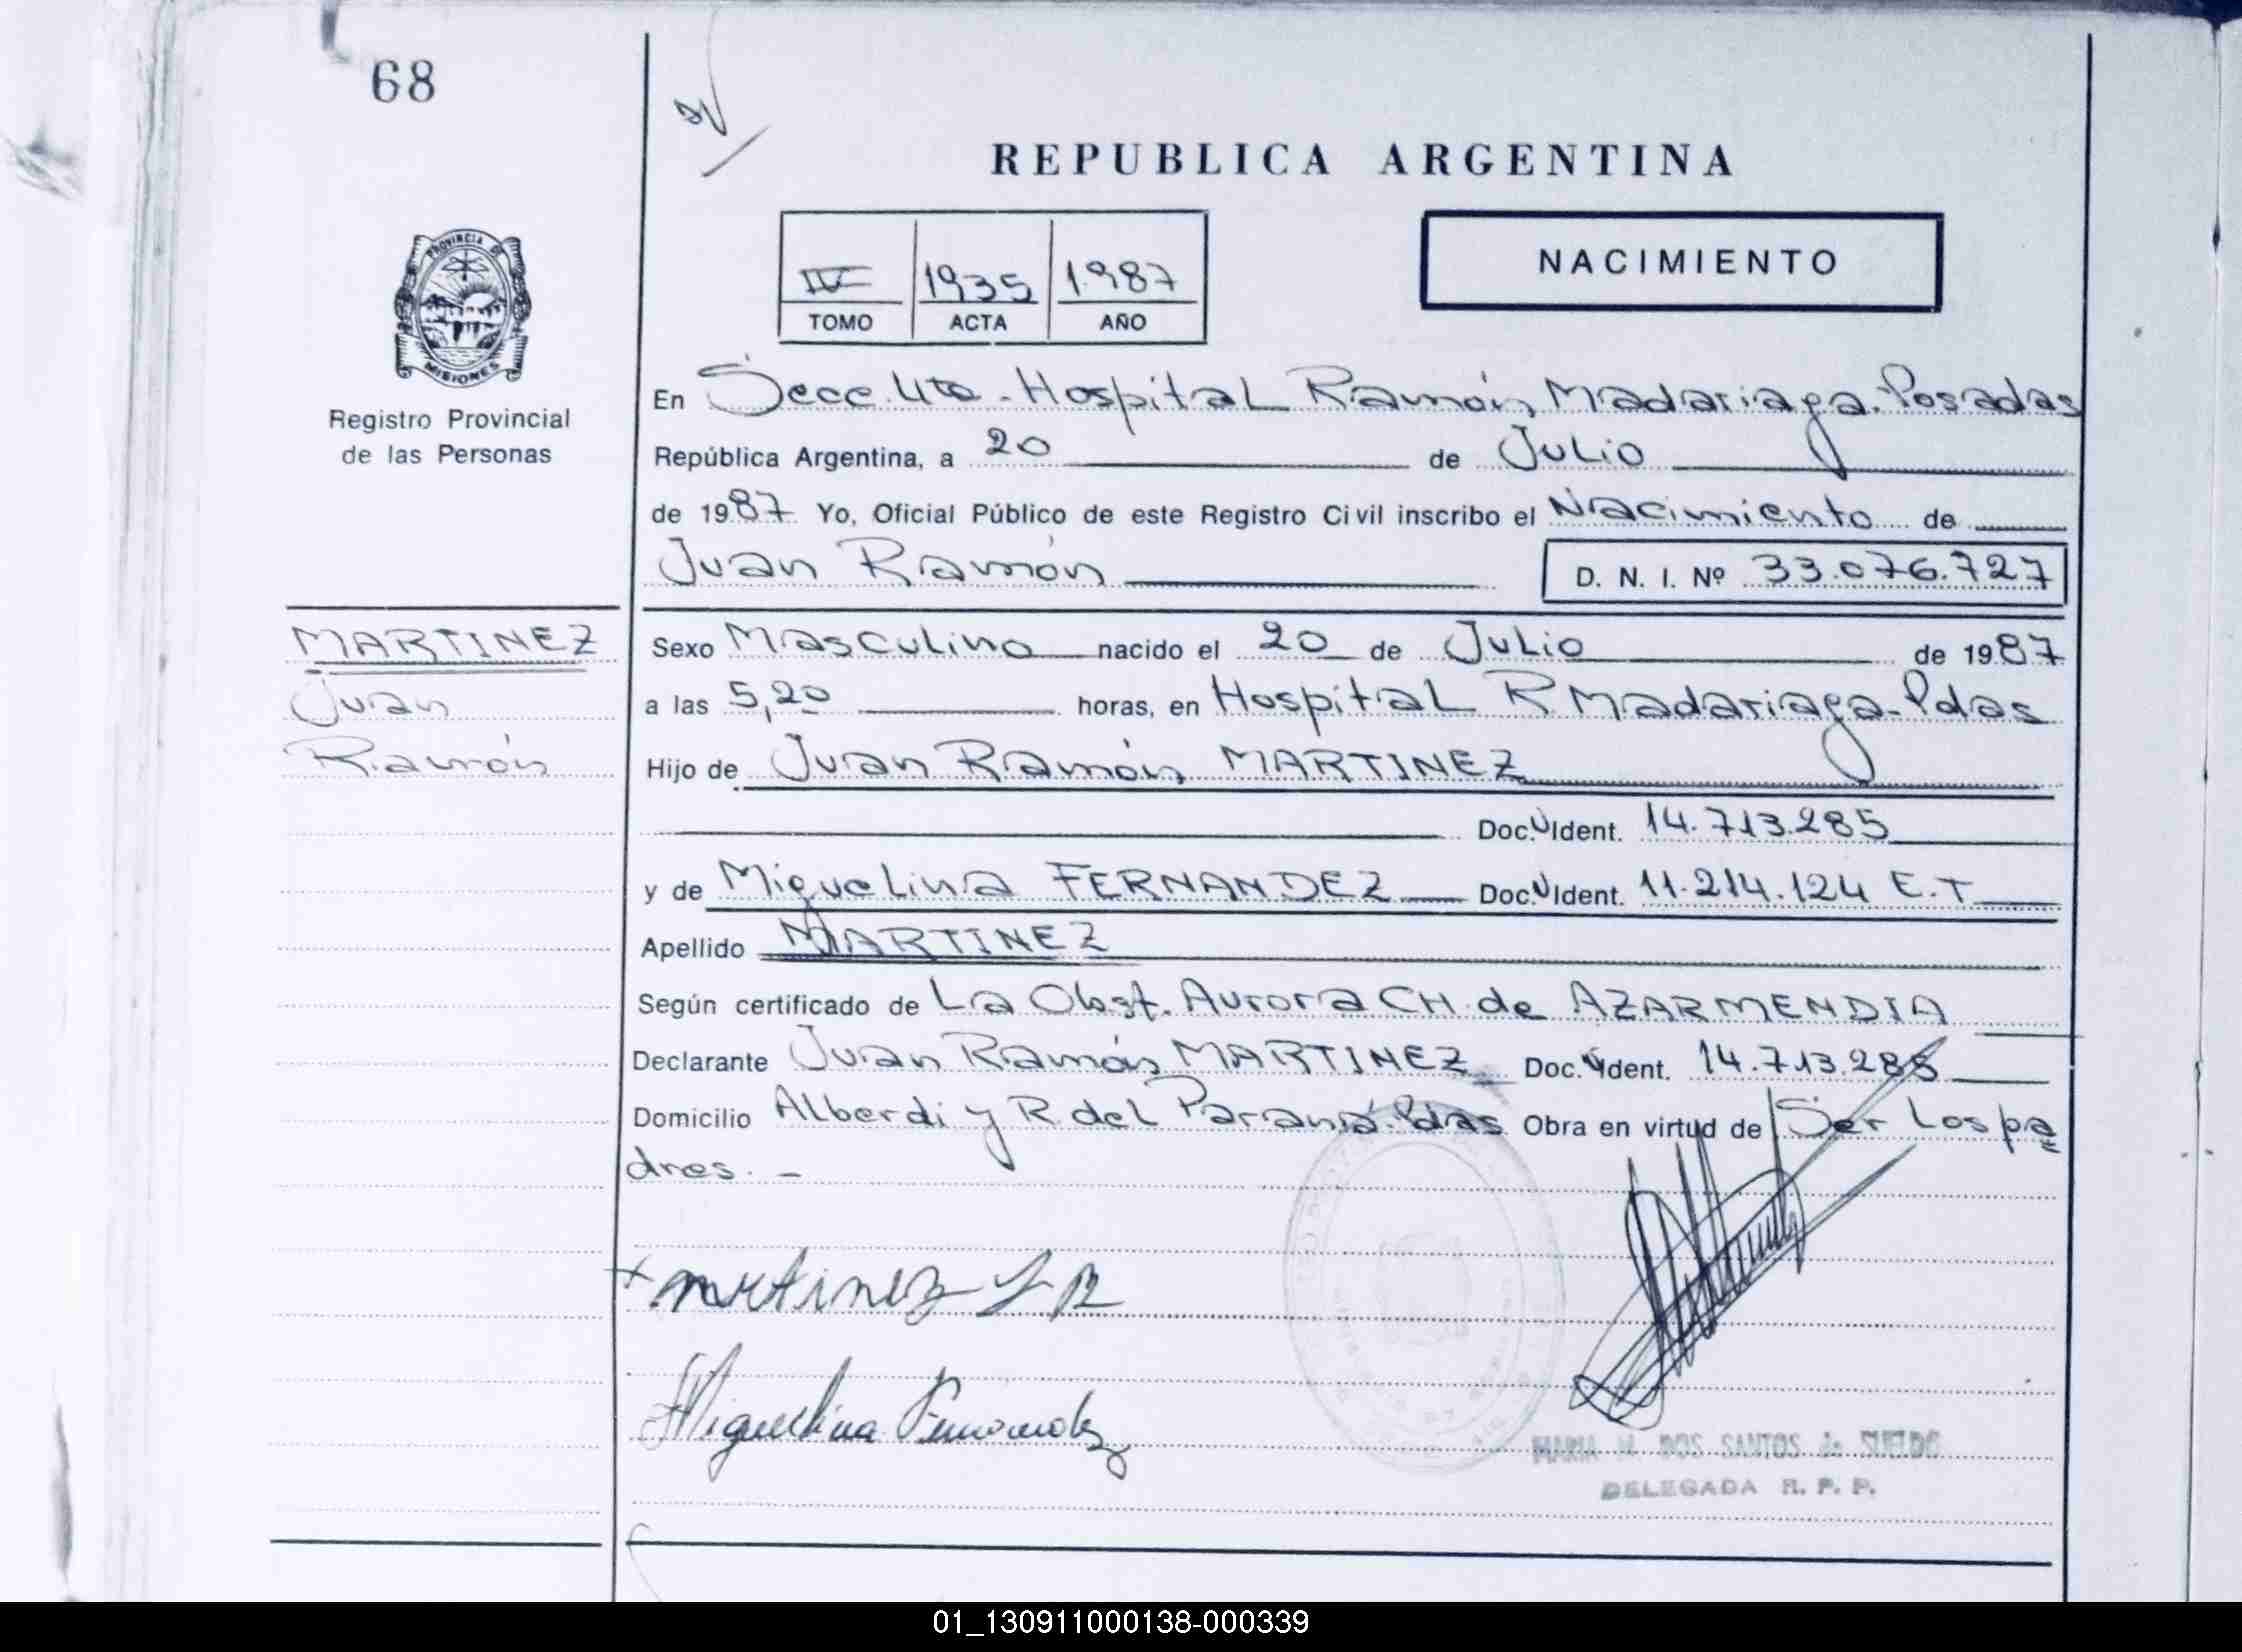 68
REPUBLICA ARGENTINA
IV 1935 1987
TOMO ACTA AÑO
NACIMIENTO
PROVINCIA DE
MISIONES
Registro Provincial
de las Personas
En Secc. 4ta - Hospital Ramón Madariaga. Posadas
República Argentina, a 20 de Julio
de 1987 Yo, Oficial Público de este Registro Civil inscribo el Nacimiento de
Juan Ramón D. N. I. Nº 33.076.727
MARTINEZ
Juan
Ramón
Sexo Masculino nacido el 20 de Julio de 1987
a las 5,20 horas, en Hospital R Madariaga - Pdas
Hijo de Juan Ramón MARTINEZ
Doc. Ident. 14.713.285
y de Miguelina FERNANDEZ Doc. Ident. 11.214.124 E.T
Apellido MARTINEZ
Según certificado de La Obst. Aurora CH. de AZARMENDIA
Declarante Juan Ramón MARTINEZ Doc. Ident. 14.713.285
Domicilio Alberdi y R del Paraná. Pdas Obra en virtud de Ser Los pa
dres. -
martinez J R
Miguelina Fernandez
MARIA M. DOS SANTOS de SUELDO
DELEGADA R. P. P.
01_130911000138-000339